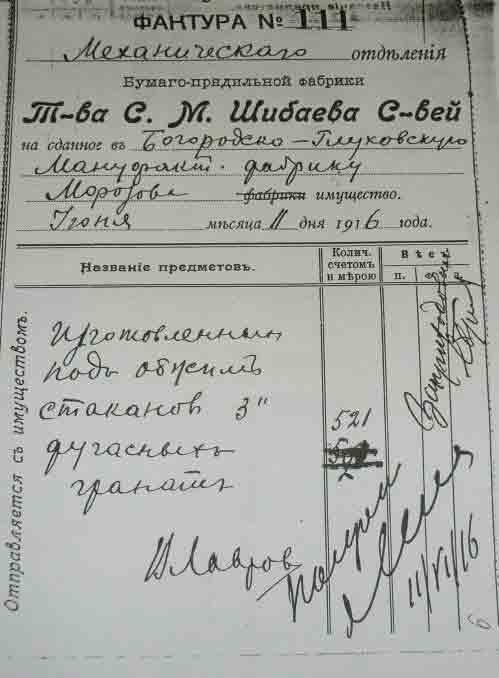 ФАКТУРА № 111
Механическаго отдѣленія
Бумаго-прядильной фабрики
Т-ва С. М. Шибаева С-вей
на сданное въ Богородско-Глуховскую
Мануфакт. фабрику
Морозова фабрики имущество.
Іюня мѣсяца 11 дня 1916 года.
Названіе предметовъ.
Колич. счетомъ и мѣрою
Вѣсъ
п.
Отправляется съ имуществомъ.
Изготовленныхъ
подъ обжимъ
стакановъ 3" 521
фугасныхъ
гранатъ
Лавровъ
Получил
11/VI/16